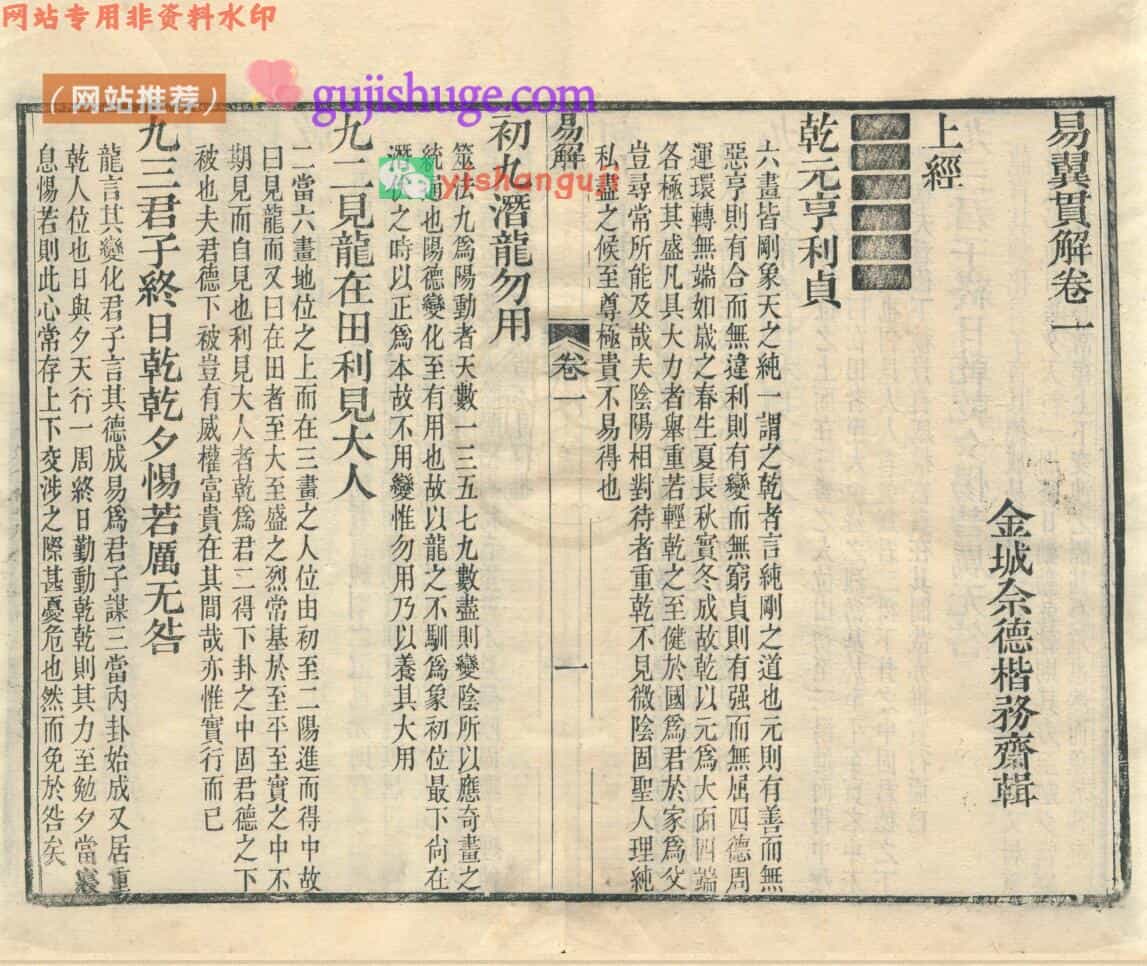 网站专用非资料水印
(网站推荐)
gujishuge.com
yishanguji
易翼貫解卷一
金城佘德楷務齋輯
上經
乾元亨利貞
六畫皆剛象天之純一謂之乾者言純剛之道也元則有善而無
惡亨則有合而無違利則有變而無窮貞則有强而無屈四德周
運環轉無端如歲之春生夏長秋實冬成故乾以元爲大而四端
各極其盛凡具大力者舉重若輕乾之至健於國爲君於家爲父
豈尋常所能及哉夫陰陽相對待者重乾不見微陰固聖人理純
私盡之候至尊極貴不易得也
易解
卷一
一
初九潛龍勿用
筮法九爲陽動者天數一三五七九數盡則變陰所以應奇畫之
統通也陽德變化至有用也故以龍之不馴爲象初位最下尙在
潛伏之時以正爲本故不用變惟勿用乃以養其大用
九二見龍在田利見大人
二當六畫地位之上而在三畫之人位由初至二陽進而得中故
曰見龍而又曰在田者至大至盛之烈常基於至平至實之中不
期見而自見也利見大人者乾爲君二得下卦之中固君德之下
被也夫君德下被豈有威權富貴在其間哉亦惟實行而已
九三君子終日乾乾夕惕若厲无咎
龍言其變化君子言其德成易爲君子謀三當內卦始成又居重
乾人位也日與夕天行一周終日勤動乾乾則其力至勉夕當褱
息惕若則此心常存上下交涉之際甚憂危也然而免於咎矣